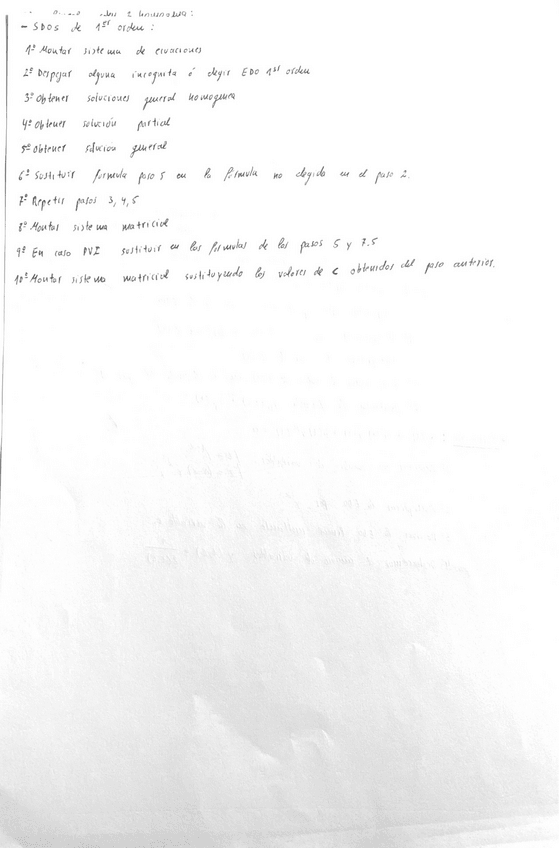 - SDOS de 1er orden:
1º Montar sistema de ecuaciones
2º Despejar alguna incognita ó elegir EDO 1er orden
3º Obtener soluciones general homogenea
4º Obtener solución partial
5º Obtener solución general
6º Sustituir formula paso 5 en la formula no elegida en el paso 2.
7º Repetir pasos 3, 4, 5
8º Montar sistema matricial
9º En caso PVI sustituir en las formulas de los pasos 5 y 7.5
10º Montar sistema matricial sustituyendo los valores de C obtenidos del paso anterior.